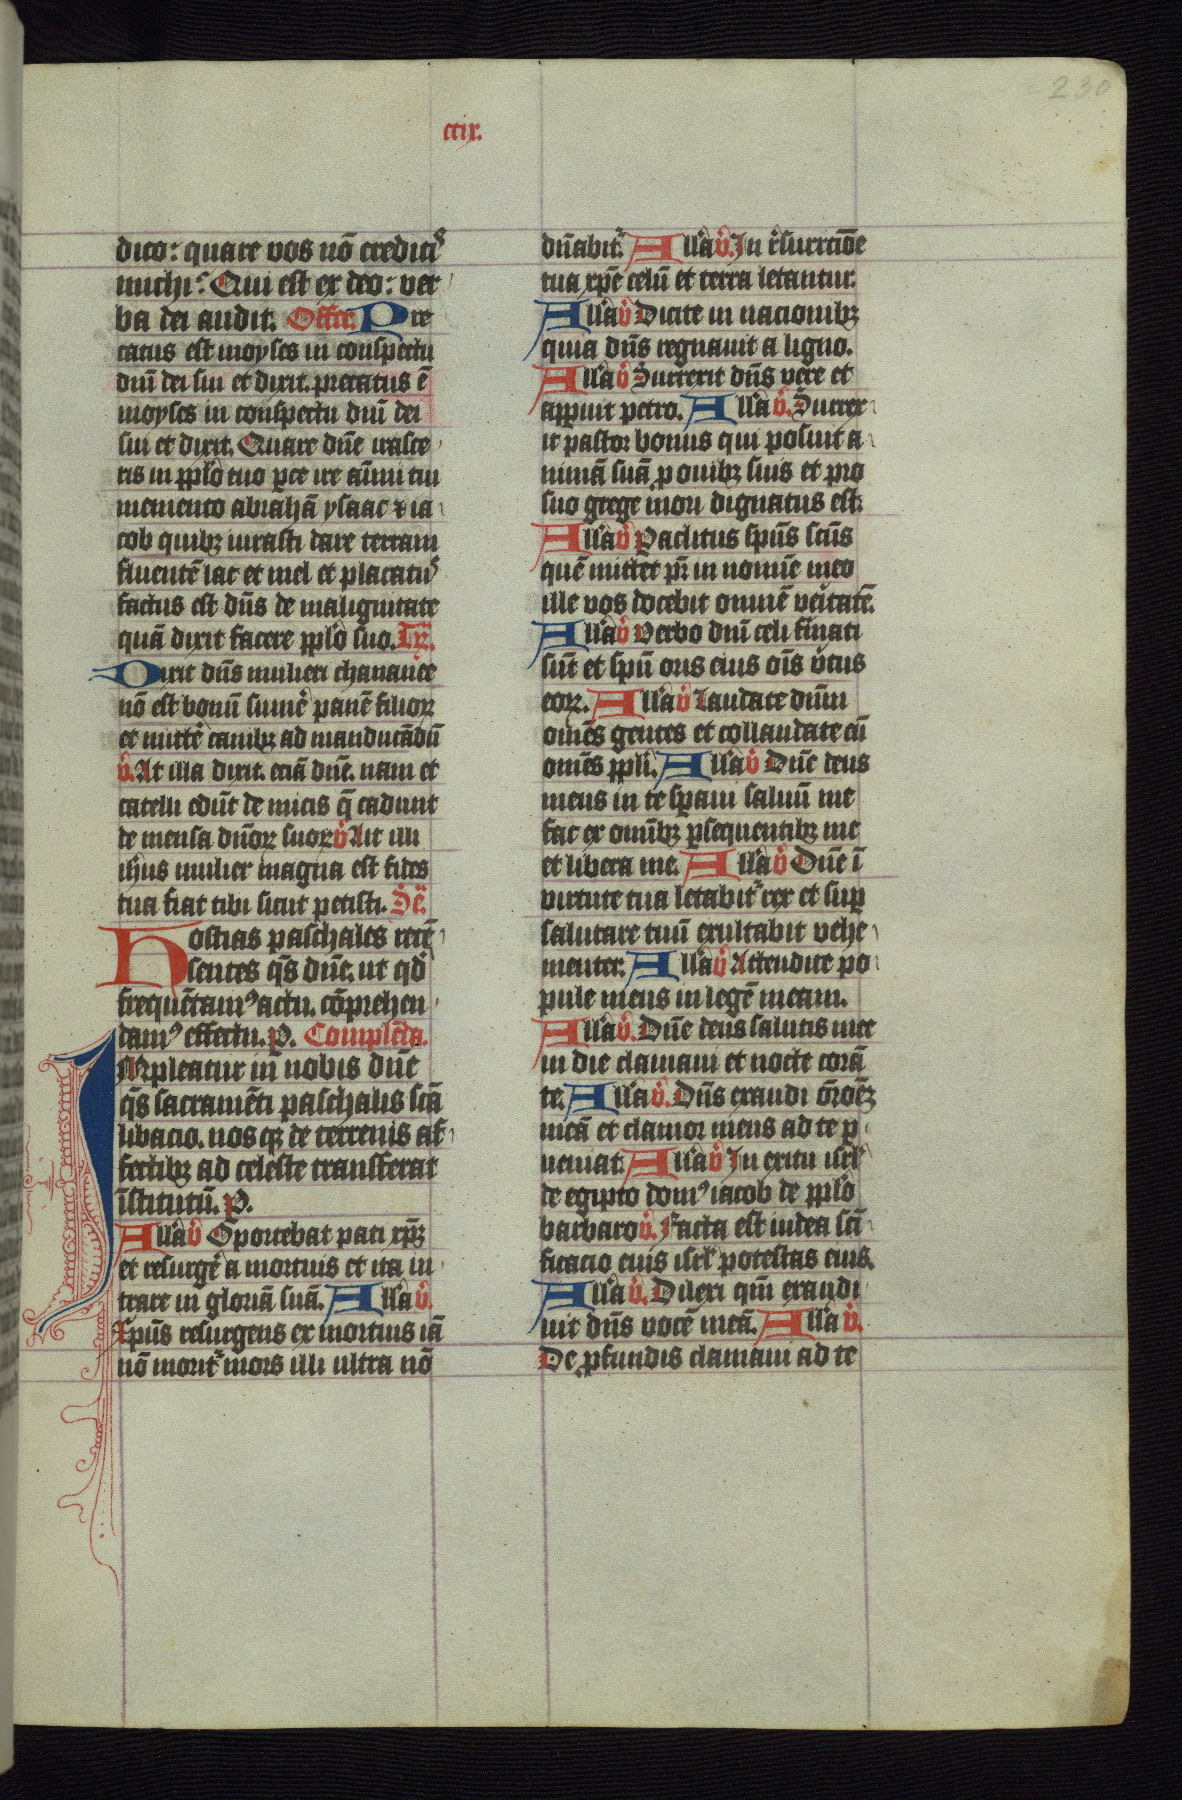 230
ccix.
dico: quare vos nō crediti⁹
michi? Qui est ex deo: ver
ba dei audit. Offer. Pre
catus est moyses in conspectu
dn̄i dei sui et dixit. precatus ē
moyses in conspectu dn̄i dei
sui et dixit. Quare dn̄e irasce
ris in pp̄lo tuo p̄ce ire aīmi tui
memento abrahā ysaac ⁊ ia
cob quibꝫ iurasti dare terram
fluentē lac et mel et placatu⁹
factus est dn̄s de malignitate
quā dixit facere pp̄lo suo. Ꝟ.
Dixit dn̄s mulieri chananee
nō est bonū sumē panē filioꝝ
et mittē canibꝫ ad manducādū
v̄. At illa dixit. eciā dn̄e. nam et
catelli edūt de micis q̄ cadunt
de mensa dn̄oꝝ suoꝝ v̄ Ait illi
ihus mulier magna est fides
tua fiat tibi sicut petisti. Sē.
Hostias paschales recē
sentes q̄s dn̄e. ut qd̄
frequētam⁹ actu. cōprehen
dam⁹ effectu. P. Complēda.
Impleatur in nobis dn̄e
q̄s sacramēti paschalis scā
libacio. nosqꝫ de terrenis af
fectibꝫ ad celeste transferat
īstitutū. P.
All'a v̄ Oportebat pati xp̄ꝫ
et resurgē a mortuis et ita in
trare in gloriā suā. All'a v̄.
Xpūs resurgens ex mortuis iā
nō morit᷑ mors illi ultra nō
dn̄abit᷑. All'a v̄. In r̄surrcōne
tua xp̄e celū et terra letantur.
All'a v̄ Dicite in nacionibꝫ
quia dn̄s regnauit a ligno.
All'a v̄ Surrexit dn̄s vere et
apparuit petro. All'a v̄. Surrex
it pastor bonus qui posuit a
nimā suā ꝓ ouibꝫ suis et pro
suo grege mori dignatus est.
All'a v̄ Paclitus spūs scūs
quē mittet pr̄ in nomīe meo
ille vos docebit omnē veritatē.
All'a v̄ Verbo dn̄i celi firmati
sūt et spū oris eius oīs v̄tus
eoꝝ. All'a v̄ Laudate dn̄m
omēs gentes et collaudate eū
omēs pp̄li. All'a v̄ Dn̄e deus
meus in te sp̄aui saluū me
fac ex omībꝫ ꝑsequentibꝫ me
et libera me. All'a v̄ Dn̄e ī
virtute tua letabit᷑ rex et sup̄
salutare tuū exultabit vehe
menter. All'a v̄ Attendite po
pule meus in legē meam.
All'a v̄. Dn̄e deus salutis mee
in die clamaui et nocte corā
te. All'a v̄. Dn̄s exaudi ōrōeꝫ
meā et clamor meus ad te p
ueniat. All'a v̄ In exitu isrl'
de egipto dom⁹ iacob de pp̄lo
barbaro v̄. Facta est iudea scī
ficacio eius isrl' potestas eius.
All'a v̄. Dilexi qm̄ exaudi
uit dn̄s vocē meā. All'a v̄.
De ꝓfundis clamaui ad te